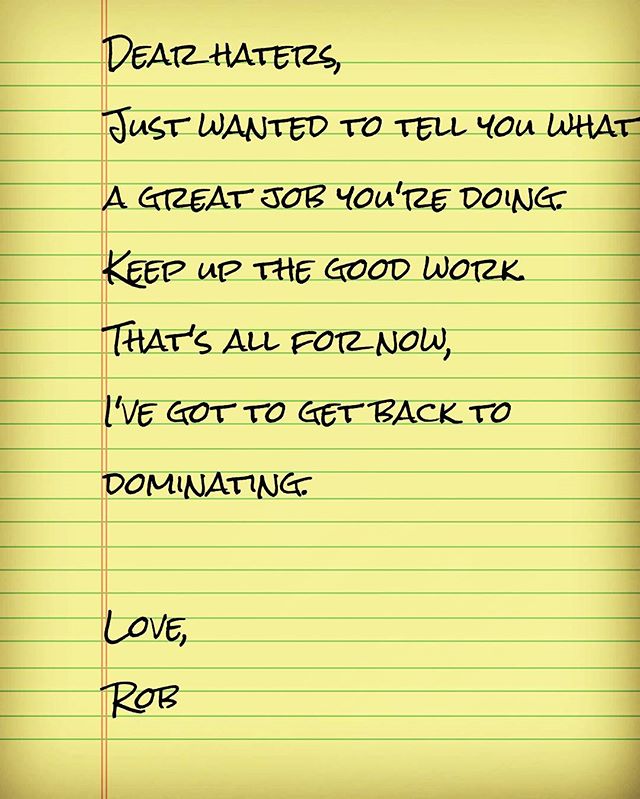 Dear haters,
Just wanted to tell you what
a great job you're doing.
Keep up the good work.
That's all for now,
I've got to get back to
dominating.
Love,
Rob